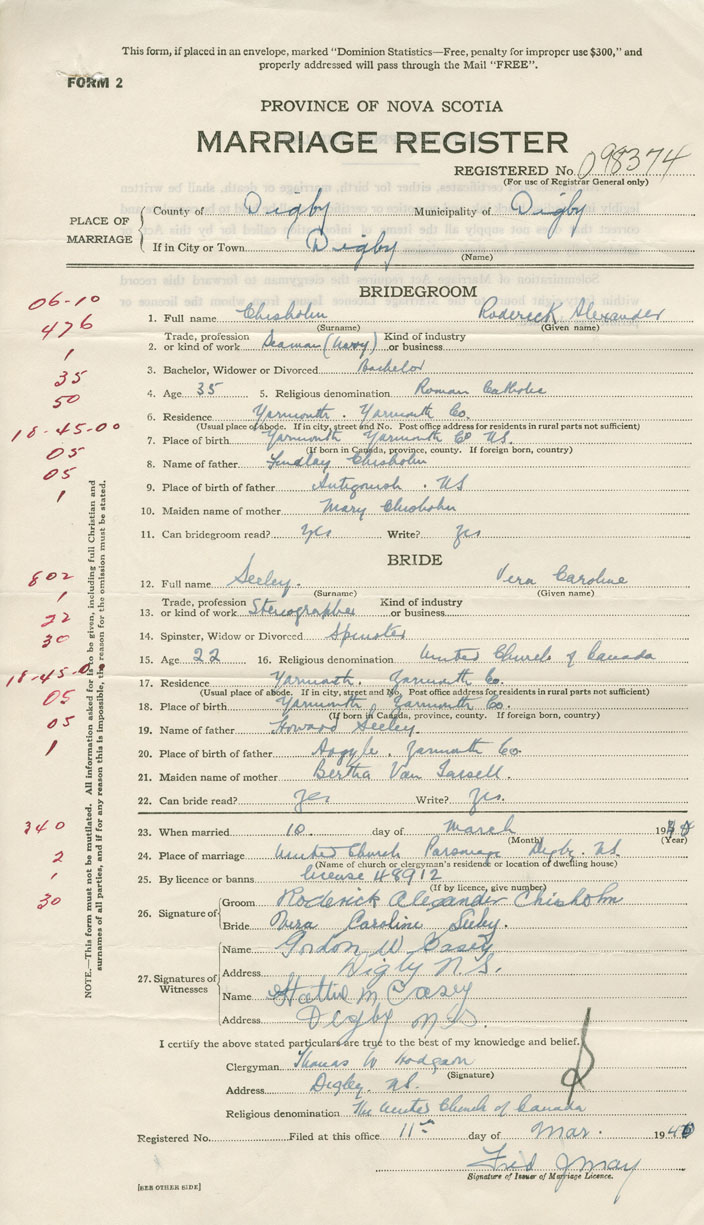 This form, if placed in an envelope, marked "Dominion Statistics—Free, penalty for improper use $300," and
properly addressed will pass through the Mail "FREE".
FORM 2
PROVINCE OF NOVA SCOTIA
MARRIAGE REGISTER
REGISTERED No. 098374
(For use of Registrar General only)
PLACE OF MARRIAGE
County of Digby Municipality of Digby
If in City or Town Digby
(Name)
BRIDEGROOM
06-10
1. Full name Chisholm Roderick Alexander
(Surname) (Given name)
476
2. Trade, profession or kind of work Seaman (Navy) Kind of industry or business
1
3. Bachelor, Widower or Divorced Bachelor
35
4. Age 35 5. Religious denomination Roman Catholic
50
6. Residence Yarmouth. Yarmouth Co.
(Usual place of abode. If in city, street and No. Post office address for residents in rural parts not sufficient)
18-45-00
7. Place of birth Yarmouth Yarmouth Co NS.
(If born in Canada, province, county. If foreign born, country)
05
8. Name of father Findlay Chisholm
05
9. Place of birth of father Antigonish. NS
1
10. Maiden name of mother Mary Chisholm
11. Can bridegroom read? Yes Write? Yes
BRIDE
802
12. Full name Seeley. Vera Caroline
(Surname) (Given name)
1
13. Trade, profession or kind of work Stenographer Kind of industry or business
22
14. Spinster, Widow or Divorced Spinster
30
15. Age 22 16. Religious denomination United Church of Canada
18-45-0
17. Residence Yarmouth. Yarmouth Co.
(Usual place of abode. If in city, street and No. Post office address for residents in rural parts not sufficient)
05
18. Place of birth Yarmouth Yarmouth Co.
(If born in Canada, province, county. If foreign born, country)
05
19. Name of father Howard Seeley.
1
20. Place of birth of father Argyle. Yarmouth Co.
21. Maiden name of mother Bertha Van Tassell.
22. Can bride read? Yes Write? Yes.
340
23. When married 10 day of March 19
(Month) (Year)
2
24. Place of marriage United Church Parsonage Digby. NS.
(Name of church or clergyman's residence or location of dwelling house)
1
25. By licence or banns license 48912
(If by licence, give number)
30
26. Signature of Groom Roderick Alexander Chisholm
Bride Vera Caroline Seeley.
27. Signatures of Witnesses
Name Gordon W Casey
Address Digby N.S.
Name Hattie M Casey
Address Digby N.S.
I certify the above stated particulars are true to the best of my knowledge and belief.
Clergyman Thomas W Hodgson
(Signature)
Address Digby. NS.
Religious denomination The United Church of Canada
Registered No. Filed at this office 11th day of Mar. 194
Fred J May
Signature of Issuer of Marriage Licence.
[SEE OTHER SIDE]
NOTE.—This form must not be mutilated. All information asked for is to be given, including full Christian and
surnames of all parties, and if for any reason this is impossible, the reason for the omission must be stated.